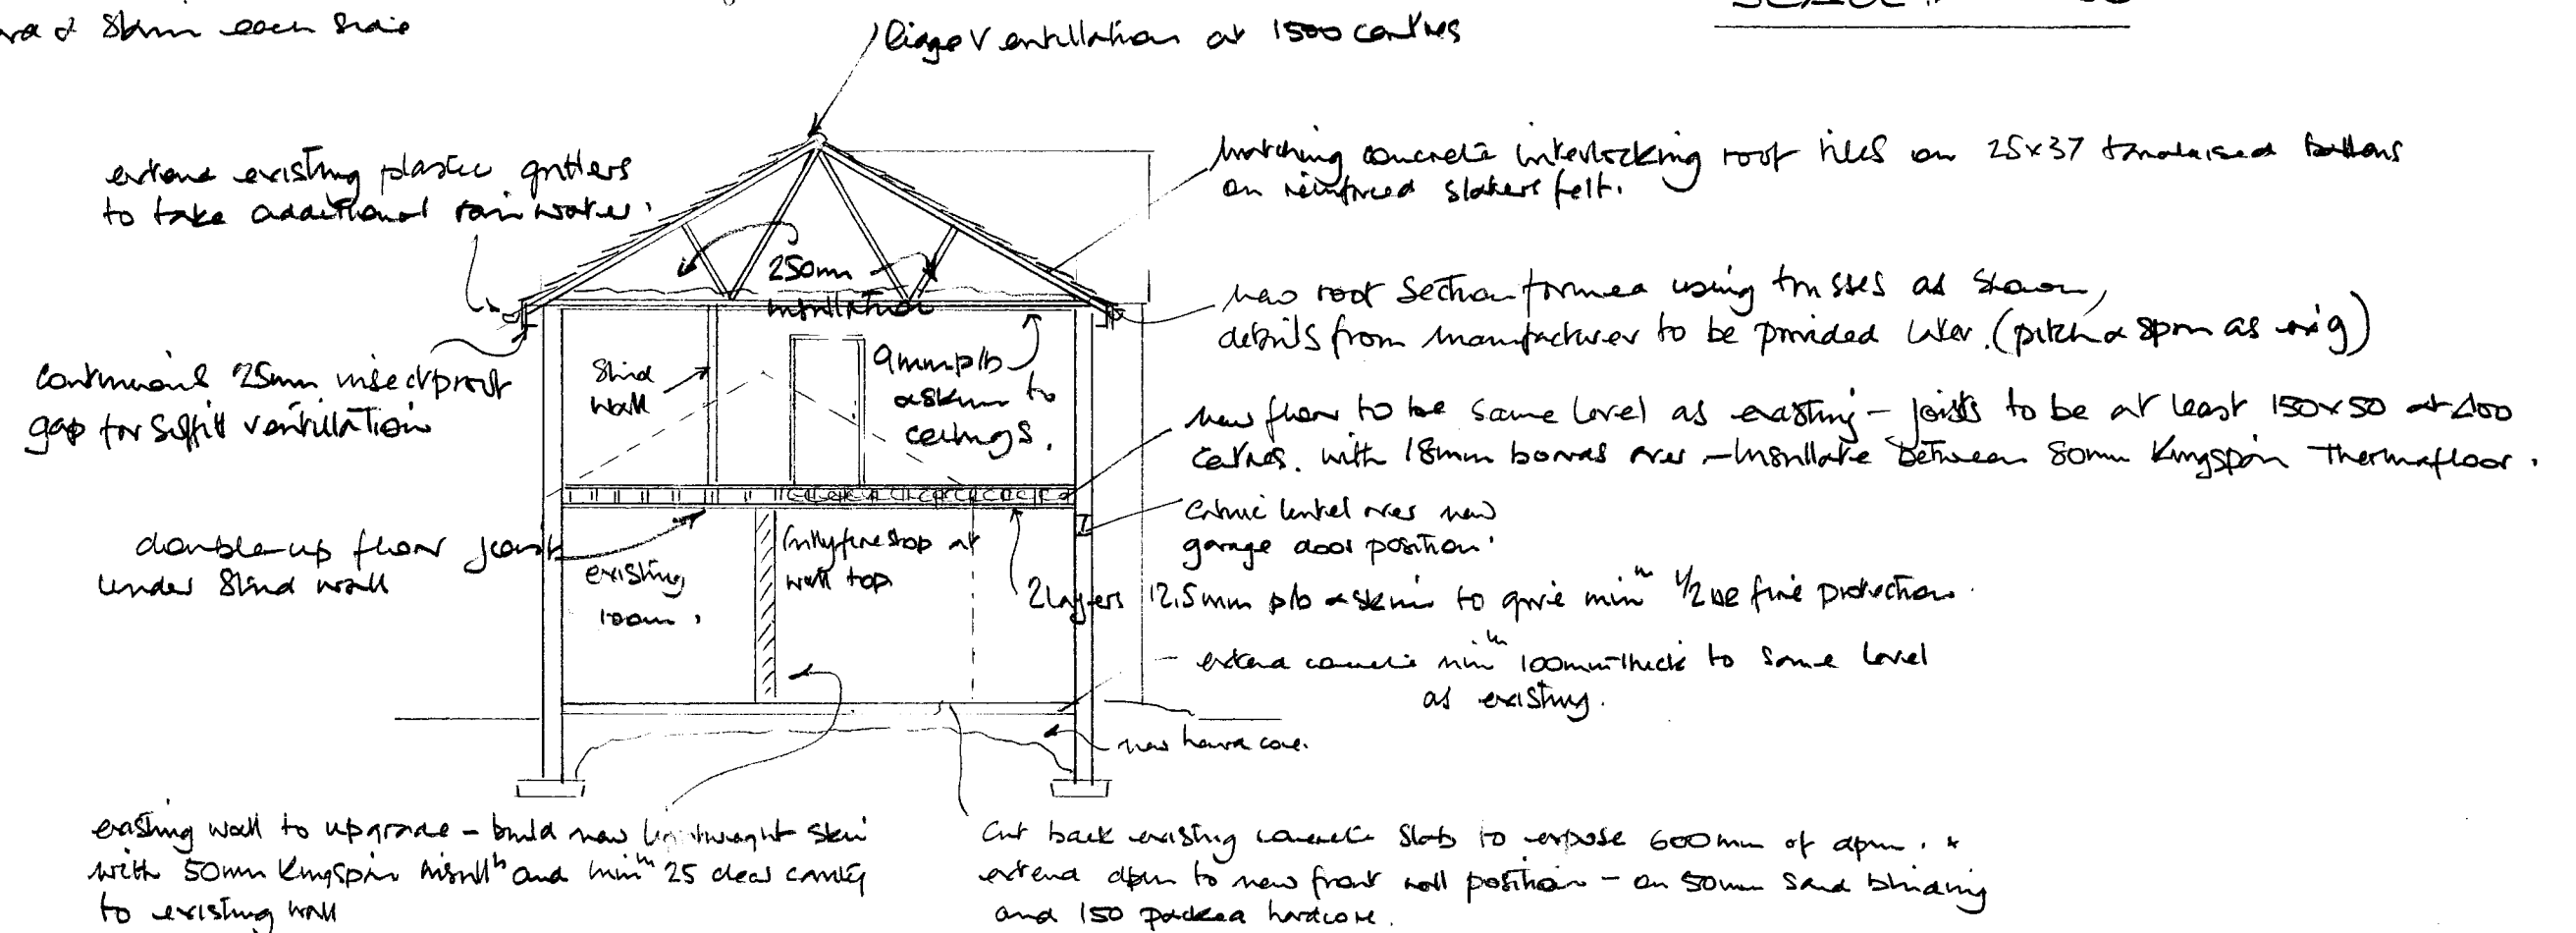 & skim each side
SCALE 1
Ridge Ventillation at 1500 centres
extend existing plastic gutters
to take additional rain water.
matching concrete interlocking roof tiles on 25x37 tanalised battens
on reinforced slaters felt.
250mm
insullation
new roof section formed using trusses as shown,
details from manufacturer to be provided later. (pitch & span as orig)
continuous 25mm insectproof
gap for soffit ventillation
Stud
wall
9mm p/b
& skim to
ceilings.
new floor to be same level as existing - joists to be at least 150x50 at 400
centres. with 18mm boards over - Insullate between 80mm Kingspan Thermafloor.
catnic lintel over new
garage door position.
double-up floor joist
under stud wall
existing
room.
fully fire stop at
wall top
2 layers 12.5mm p/b & skim to give minm 1/2 hr fire protection.
extend concrete minm 100mm thick to same level
as existing.
new hard core.
existing wall to upgrade - build new lightweight skin
with 50mm Kingspan insulln and minm 25 clear cavity
to existing wall
cut back existing concrete slab to expose 600mm of dpm. &
extend dpm to new front wall position - on 50mm sand blinding
and 150 packed hardcore.